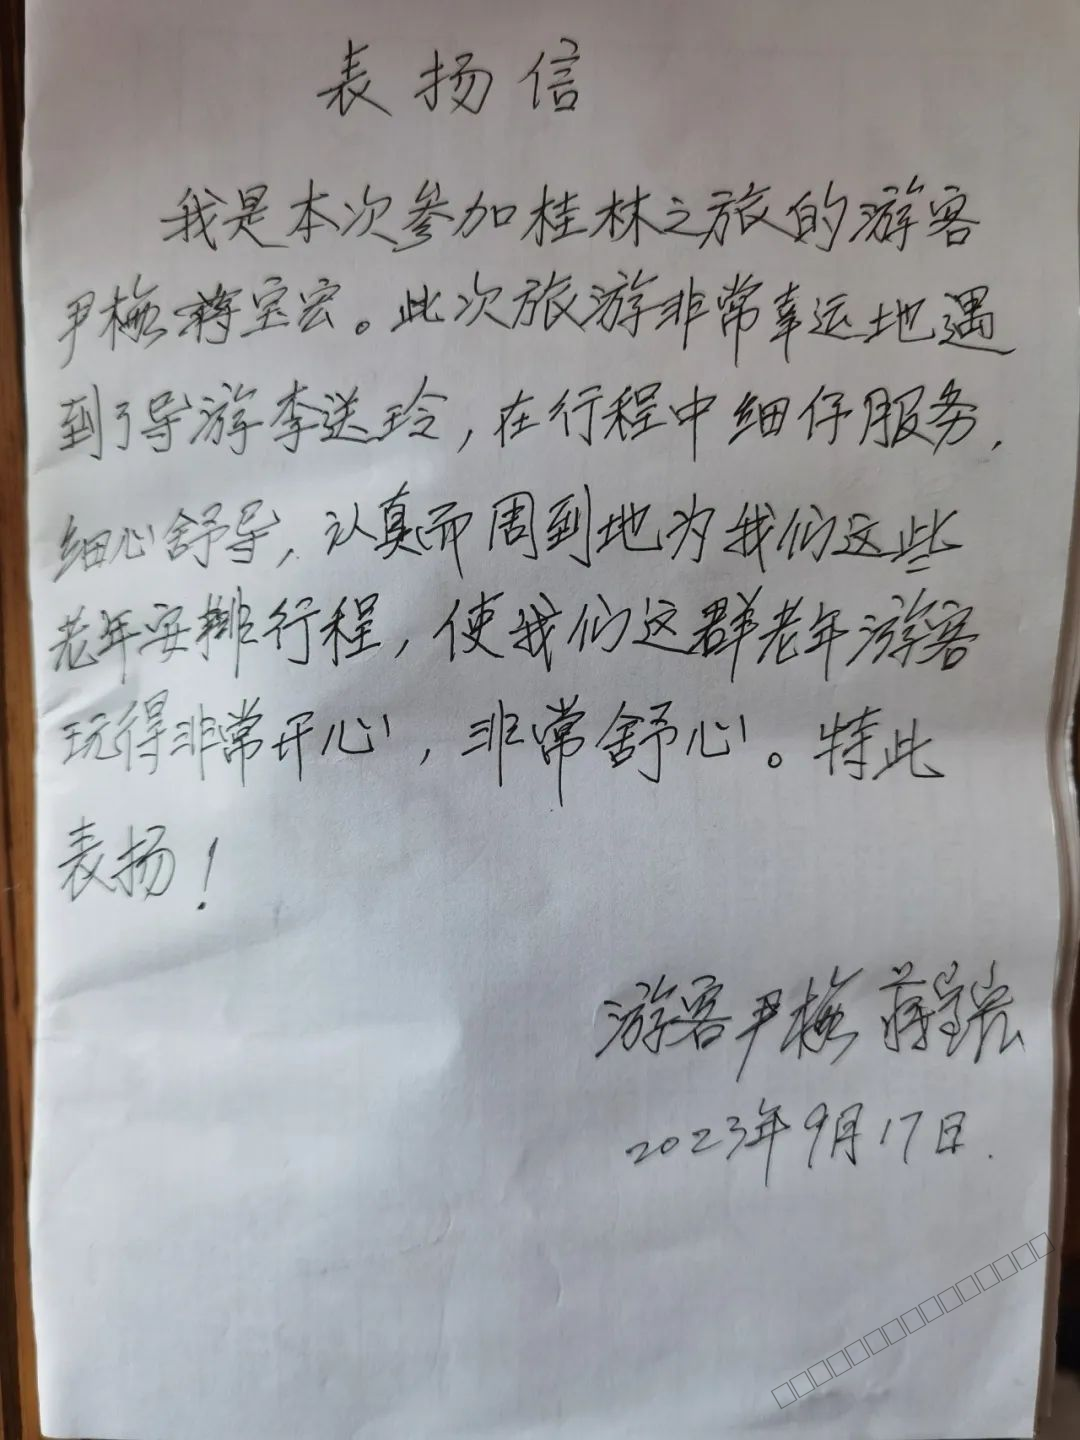 表扬信
我是本次参加桂林之旅的游客
尹梅蒋宝宏。此次旅游非常幸运地遇
到了导游李送玲，在行程中细仔服务，
细心舒导，认真而周到地为我们这些
老年安排行程，使我们这群老年游客
玩得非常开心，非常舒心。特此
表扬！
游客尹梅 蒋宝宏
2023年9月17日.